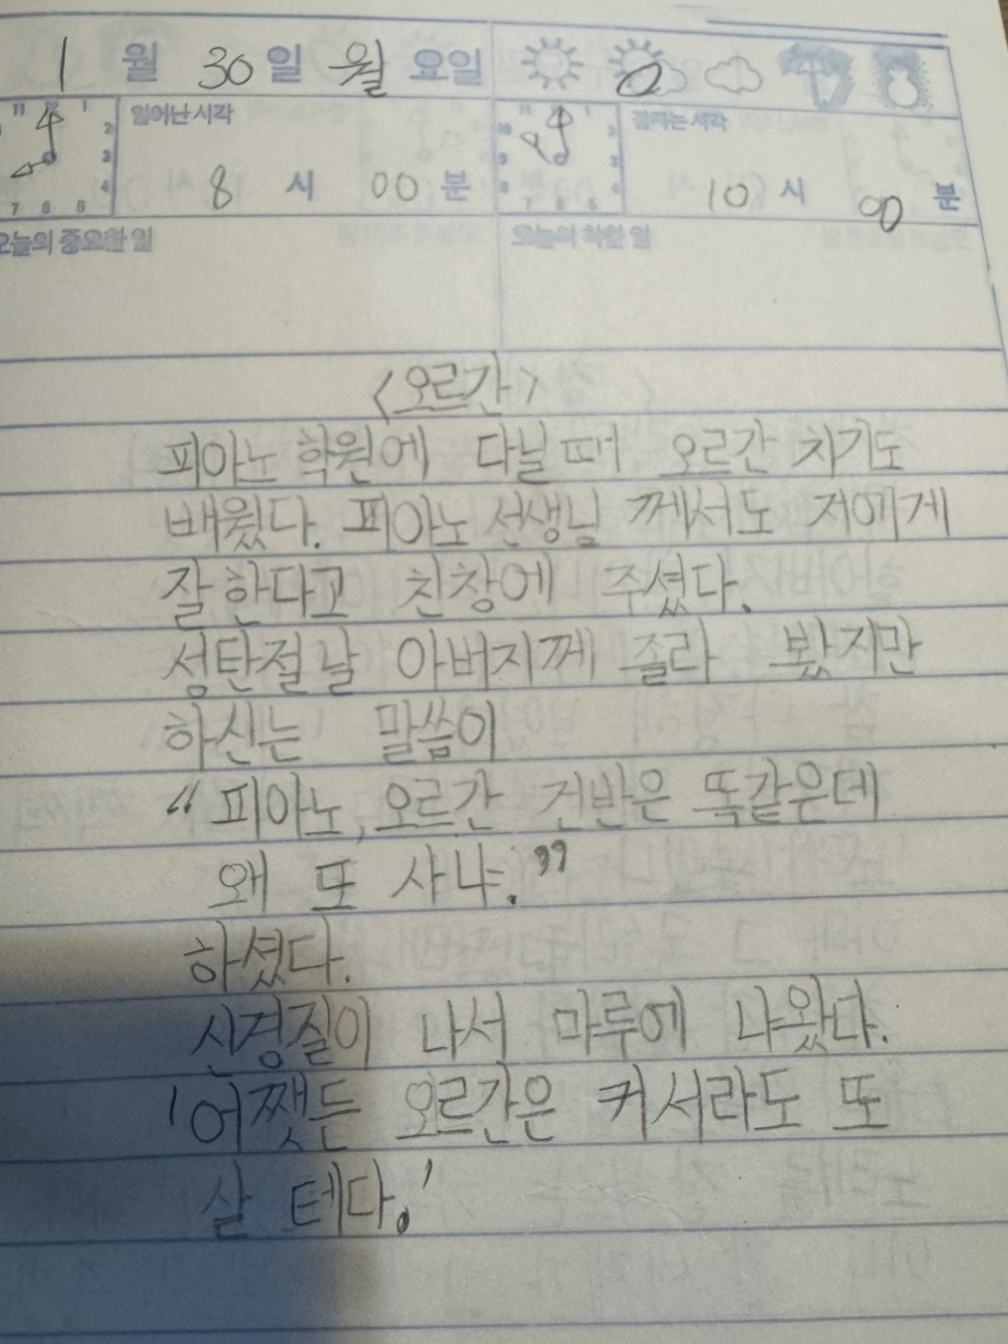 1 월 30 일 월 요일
11 12 1
2
3
4
7 6 5
일어난 시각
8 시 00 분
잠자는 시각
10 시 00 분
오늘의 중요한 일
오늘의 착한 일
<오르간>
피아노 학원에 다닐 때 오르간 치기도
배웠다. 피아노 선생님 께서도 저에게
잘 한다고 친창에 주셨다.
성탄절날 아버지께 졸라 봤지만
하신는 말씀이
"피아노, 오르간 건반은 똑같은데
왜 또 사냐."
하셨다.
신경질이 나서 마루에 나왔다.
'어쨋든 오르간은 커서라도 또
살 테다.'